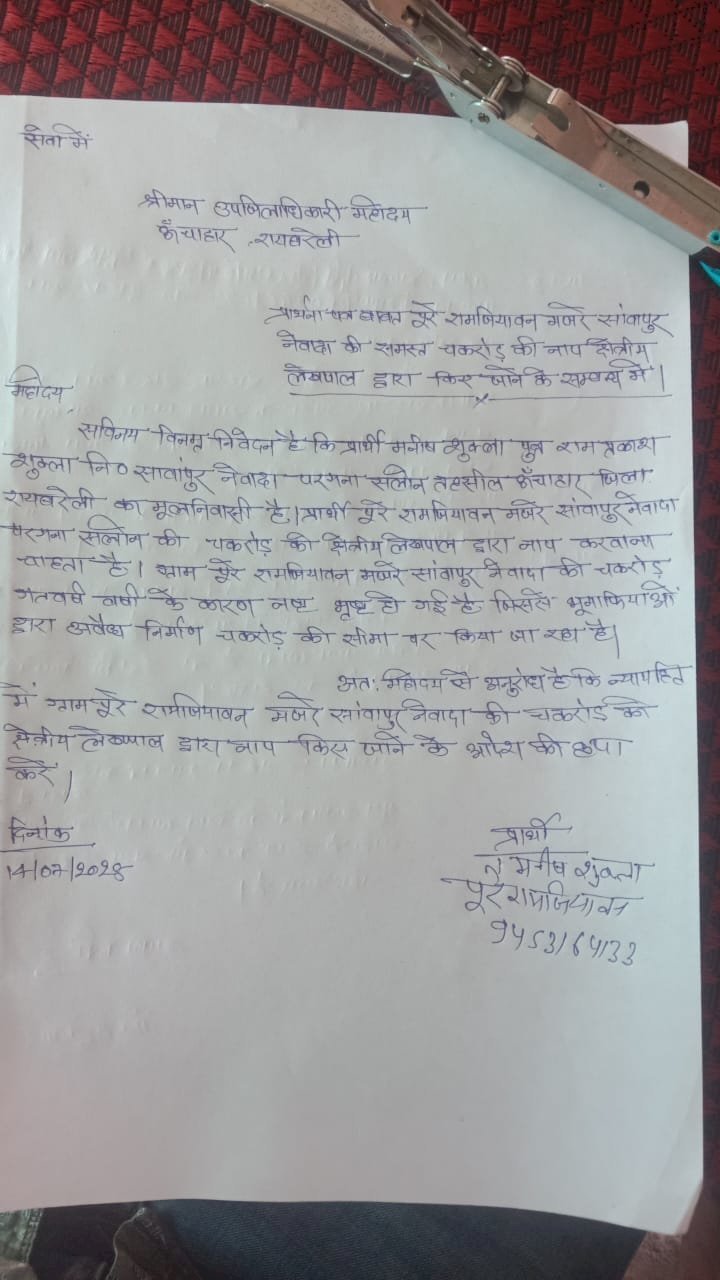 सेवा में
श्रीमान उपजिलाधिकारी महोदय
ऊँचाहार, रायबरेली
प्रार्थना पत्र बावत पूरे रामजियावन मजरे सांवापुर
नेवादा की समस्त चकरोड़ की नाप क्षेत्रीय
लेखपाल द्वारा किए जाने के सम्बन्ध में।
महोदय,
सविनय विनम्र निवेदन है कि प्रार्थी मनीष शुक्ला पुत्र राम प्रकाश
शुक्ला नि० सावांपुर नेवादा परगना सलोन तहसील ऊँचाहार जिला
रायबरेली का मूलनिवासी है। प्रार्थी पूरे रामजियावन मजरे सांवापुर नेवादा
परगना सलोन की चकरोड़ को क्षेत्रीय लेखपाल द्वारा नाप करवाना
चाहता है। ग्राम पूरे रामजियावन मजरे सांवापुर नेवादा की चकरोड़
गतवर्ष वर्षा के कारण नष्ट भ्रष्ट हो गई है जिससे भूमाफियाओं
द्वारा अवैध निर्माण चकरोड़ की सीमा पर किया जा रहा है।
अतः महोदय से अनुरोध है कि न्यायहित
में ग्राम पूरे रामजियावन मजरे सांवापुर नेवादा की चकरोड को
क्षेत्रीय लेखपाल द्वारा नाप किए जाने के आदेश की कृपा
करें।
दिनांक
14/07/2028
प्रार्थी
मनीष शुक्ला
पूरे रामजियावन
9453164133